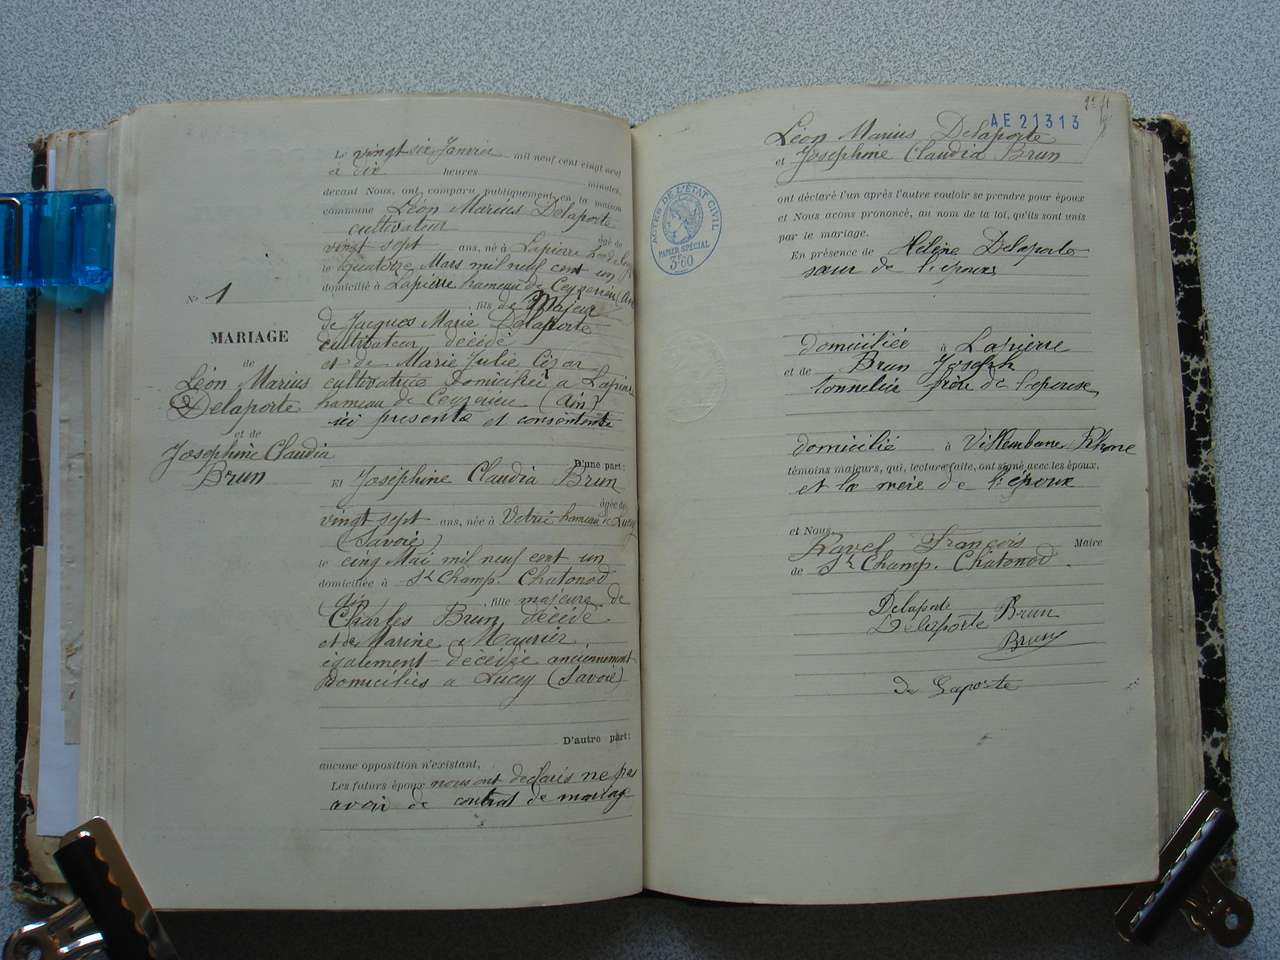 Le vingt six Janvier mil neuf cent vingt neuf
à dix heures minutes,
devant Nous, ont comparu publiquement en la maison
commune Léon Marius Delaporte
cultivateur âgé de
vingt sept ans, né à Lapierre
le quatorze Mars mil neuf cent un
domicilié à Lapierre hameau de Ceyzerieu (Ain)
, fils Majeur
de Jacques Marie Delaporte
cultivateur décédé
et de Marie Julie
cultivatrice domiciliée a Lapierre
hameau de Ceyzerieu (Ain)
ici presente et consentente
D'une part;
N° 1
MARIAGE
de
Léon Marius
Delaporte
et de
Joséphine Claudia
Brun
Et Joséphine Claudia Brun
âgée de
vingt sept ans, née à hameau de Lucey
(Savoie)
le cinq Mai mil neuf cent un
domiciliée à St Champ Chatonod
Ain , fille majeure de
Charles Brun décédé
et de Marine Meunier
également décédée anciennement
domiciliés a Lucey (Savoie)
D'autre part;
aucune opposition n'existant,
Les futurs époux nous ont declarés ne pas
avoir de contrat de mariag
AE21313
Léon Marius Delaporte
et Joséphine Claudia Brun
ont déclaré l'un après l'autre vouloir se prendre pour époux
et Nous avons prononcé, au nom de la loi, qu'ils sont unis
par le mariage.
En présence de Hélène Delaporte
sœur de l'epoux
domiciliée à Lapierre
et de Brun Joseph
tonnelier frère de l'epouse
domicilié à Villeurbane Rhone
témoins majeurs, qui, lecture faite, ont signé avec les époux.
et la mère de l'epoux
et Nous
Ravel François Maire
de St Champ. Chatonod.
Delaporte Brun
Delaporte
Brun
de Laporte
ACTES DE L'ÉTAT CIVIL
PAPIER SPÉCIAL
3F60